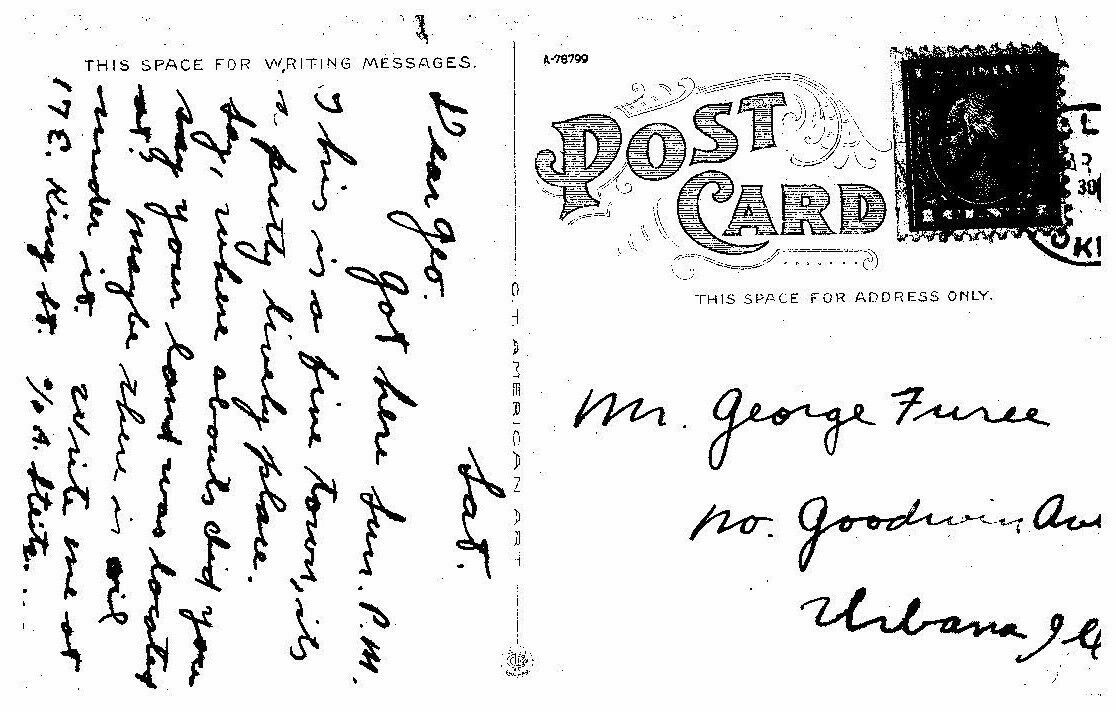 THIS SPACE FOR WRITING MESSAGES.
Sat.
Dear Geo.
Got here Sun. P.M.
This is a fine town, its
a pretty lively place.
Say, where abouts did you
say your land was located
at? maybe there is oil
under it. Write me at
17 E. King St. c/o A.
C.T. AMERICAN ART
A-78799
POST
CARD
30
THIS SPACE FOR ADDRESS ONLY.
Mr. George Furee
No. Goodwin Ave
Urbana Ill